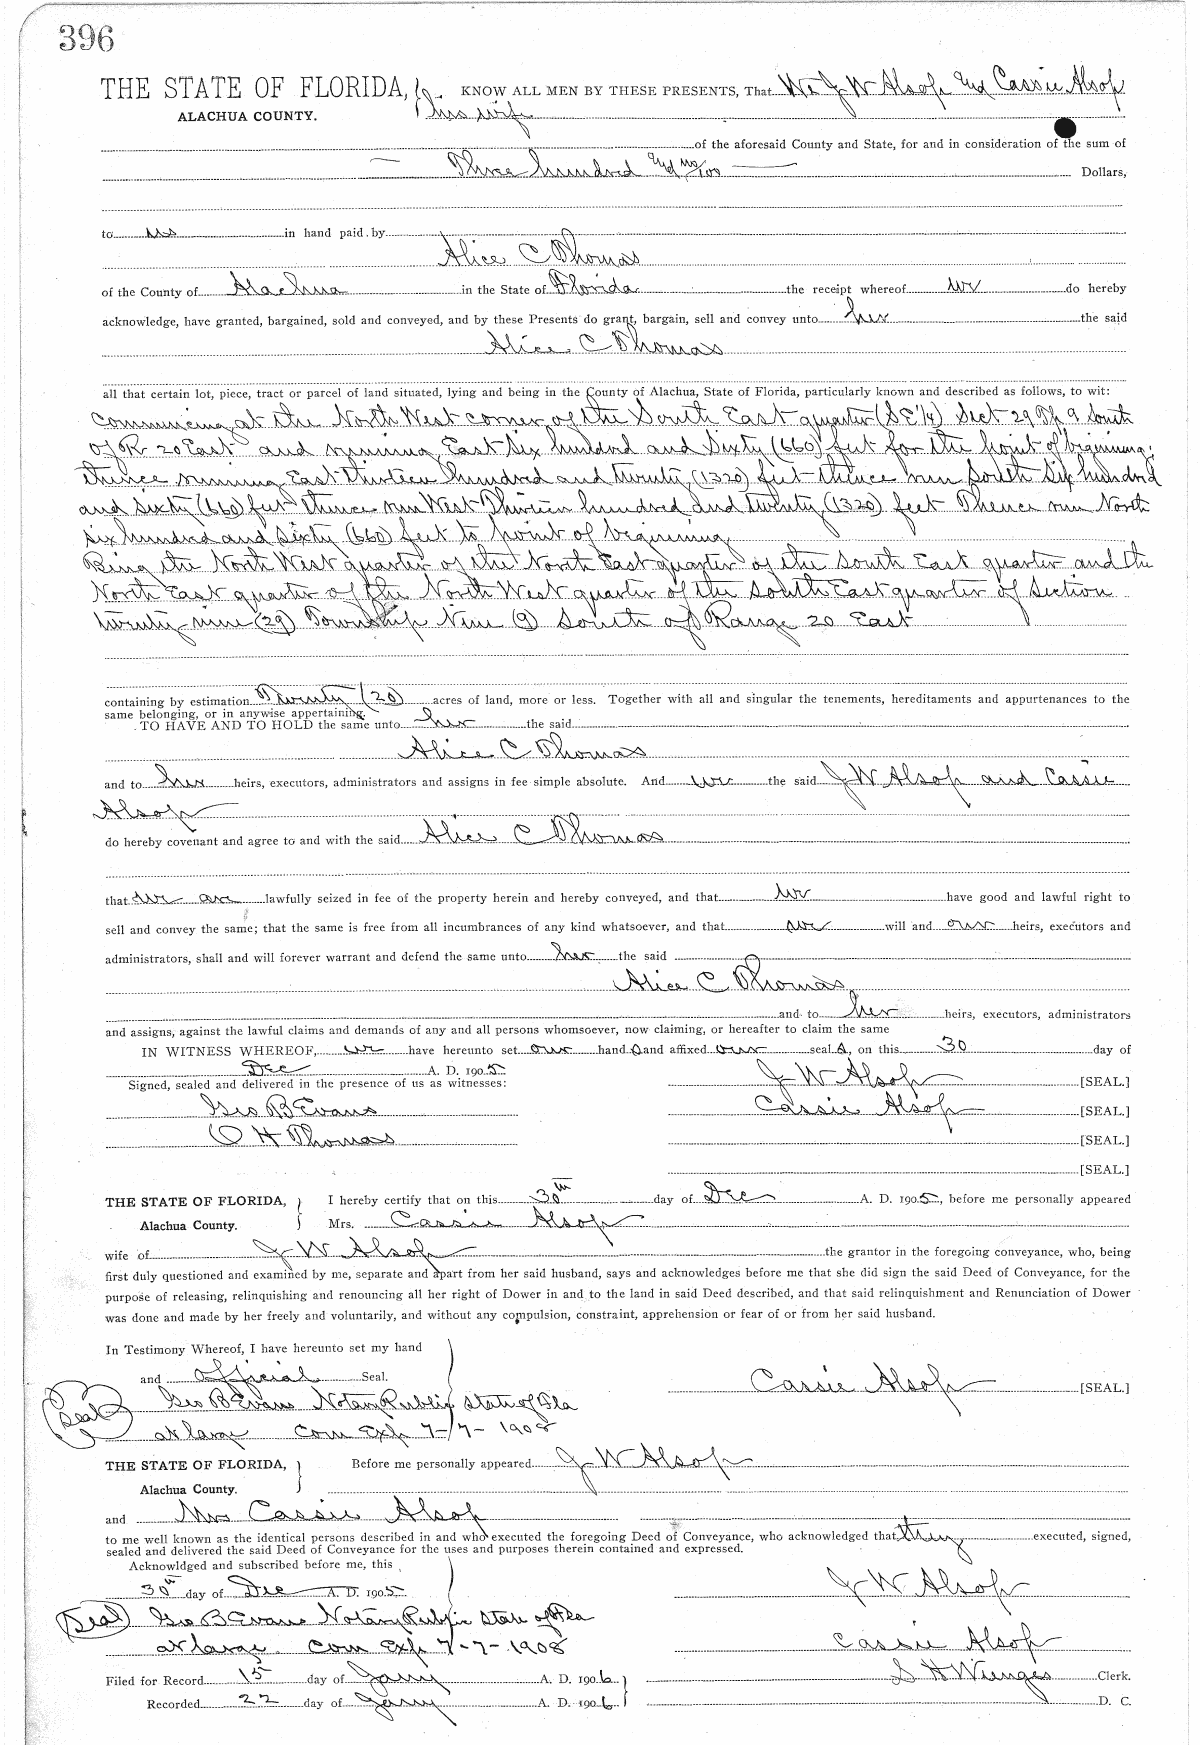 396
THE STATE OF FLORIDA, KNOW ALL MEN BY THESE PRESENTS, That We J W Alsop and Cassie Alsop
ALACHUA COUNTY. his wife
of the aforesaid County and State, for and in consideration of the sum of
Three hundred and no/100 Dollars,
to us in hand paid by
Alice C Thomas
of the County of Alachua in the State of Florida the receipt whereof we do hereby
acknowledge, have granted, bargained, sold and conveyed, and by these Presents do grant, bargain, sell and convey unto her the said
Alice C Thomas
all that certain lot, piece, tract or parcel of land situated, lying and being in the County of Alachua, State of Florida, particularly known and described as follows, to wit:
Commencing at the North West corner of the South East quarter (SE 1/4) Sect 29 Tp 9 South
of R 20 East and running East Six hundred and Sixty (660) feet for the point of beginning;
thence running East thirteen hundred and twenty (1320) feet thence run South Six hundred
and sixty (660) feet thence run West Thirteen hundred and twenty (1320) feet Thence run North
six hundred and sixty (660) feet to point of beginning
Being the North West quarter of the North East quarter of the South East quarter and the
North East quarter of the North West quarter of the South East quarter of Section
twenty-nine (29) Township Nine (9) South of Range 20 East
containing by estimation Twenty (20) acres of land, more or less. Together with all and singular the tenements, hereditaments and appurtenances to the
same belonging, or in anywise appertaining.
TO HAVE AND TO HOLD the same unto her the said
Alice C Thomas
and to her heirs, executors, administrators and assigns in fee simple absolute. And we the said J W Alsop and Cassie
Alsop
do hereby covenant and agree to and with the said Alice C Thomas
that we are lawfully seized in fee of the property herein and hereby conveyed, and that we have good and lawful right to
sell and convey the same; that the same is free from all incumbrances of any kind whatsoever, and that we will and our heirs, executors and
administrators, shall and will forever warrant and defend the same unto her the said
Alice C Thomas
and to her heirs, executors, administrators
and assigns, against the lawful claims and demands of any and all persons whomsoever, now claiming, or hereafter to claim the same
IN WITNESS WHEREOF, we have hereunto set our hands and affixed our seals, on this 30 day of
Dec A. D. 1905
Signed, sealed and delivered in the presence of us as witnesses: J W Alsop [SEAL.]
Geo B Evans Cassie Alsop [SEAL.]
O H Thomas [SEAL.]
[SEAL.]
THE STATE OF FLORIDA, I hereby certify that on this 30th day of Dec A. D. 1905, before me personally appeared
Alachua County. Mrs. Cassie Alsop
wife of J W Alsop the grantor in the foregoing conveyance, who, being
first duly questioned and examined by me, separate and apart from her said husband, says and acknowledges before me that she did sign the said Deed of Conveyance, for the
purpose of releasing, relinquishing and renouncing all her right of Dower in and to the land in said Deed described, and that said relinquishment and Renunciation of Dower
was done and made by her freely and voluntarily, and without any compulsion, constraint, apprehension or fear of or from her said husband.
In Testimony Whereof, I have hereunto set my hand
and official Seal. Cassie Alsop [SEAL.]
Seal Geo B Evans Notary Public State of Fla
at large Com Exp 7-7-1908
THE STATE OF FLORIDA, Before me personally appeared J W Alsop
Alachua County.
and Mrs Cassie Alsop
to me well known as the identical persons described in and who executed the foregoing Deed of Conveyance, who acknowledged that they executed, signed,
sealed and delivered the said Deed of Conveyance for the uses and purposes therein contained and expressed.
Acknowldged and subscribed before me, this
30th day of Dec A. D. 1905 J W Alsop
Seal Geo B Evans Notary Public State of Fla
at large Com Exp 7-7-1908 Cassie Alsop
Filed for Record 15 day of Jany A. D. 1906 S H Wienges Clerk.
Recorded 22 day of Jany A. D. 1906 D. C.